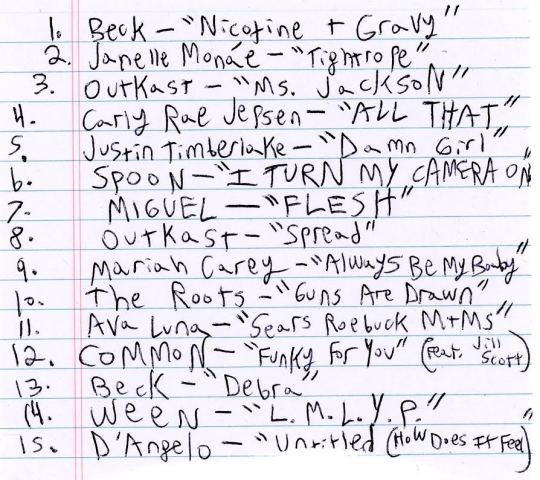 1. Beck - "Nicotine + Gravy"
2. Janelle Monáe - "Tightrope"
3. OutKast - "Ms. Jackson"
4. Carly Rae Jepsen - "ALL THAT"
5. Justin Timberlake - "Damn Girl"
6. SPOON - "I TURN MY CAMERA ON
7. MIGUEL - "FLESH"
8. OutKast - "Spread"
9. Mariah Carey - "Always Be My Baby"
10. The Roots - "Guns Are Drawn"
11. Ava Luna - "Sears Roebuck M+Ms"
12. COMMON - "Funky For You" (Feat. Jill Scott)
13. Beck - "Debra"
14. WEEN - "L.M.L.Y.P."
15. D'Angelo - "Untitled (How Does It Feel)"